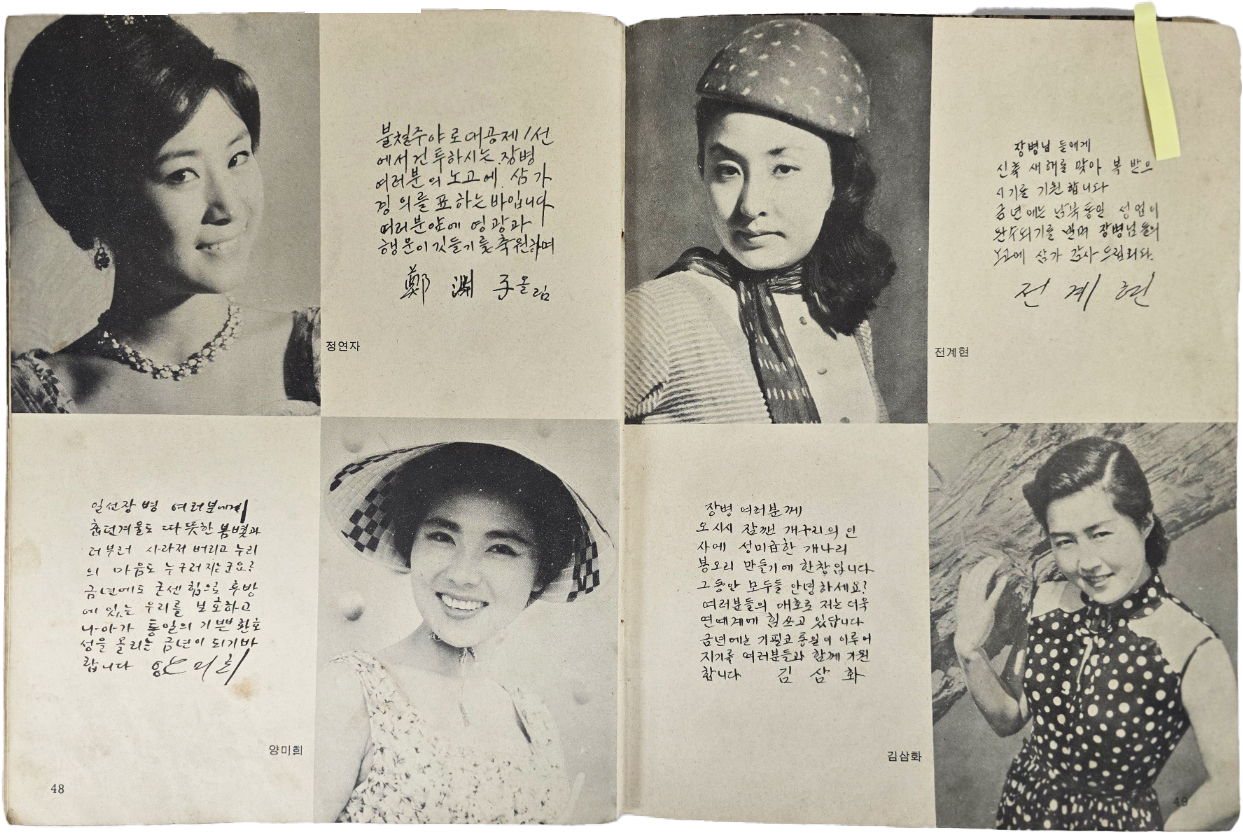 불철주야 로 대공제1선
에서 건투하시는 장병
여러분의 노고에 삼가
경의를 표하는 바입니다
여러분앞에 영광과
행운이 깃들기를 축원하며
鄭 淵 子 올림
정연자
일선장병 여러분에게
춥던겨울도 따뜻한 봄볕과
더부러 사라저 버리고 우리
의 마음도 누구러지는군요?
금년에도 굳센 힘으로 후방
에 있는 우리를 보호하고
나아가 통일의 기쁜 환호
성을 올리는 금년이 되기바
랍니다 양미희
양미희
48
장병님 들에게
신축 새해를 맞아 복 받으
시기를 기원 합니다
금년에는 남북통일 성업이
완수되기를 빌며 장병님들의
노고에 삼가 감사드립니다.
전계현
전계현
장병 여러분께
오시시 잠깬 개구리의 인
사에 성미급한 개나리
봉오리 만들기에 한창입니다.
그동안 모두들 안녕하세요?
여러분들의 애호로 저는 더욱
연예계에 힘쓰고 있답니다
금년에는 기필코 통일이 이루어
지기를 여러분들과 함께 기원
합니다 김삼화
김삼화
49